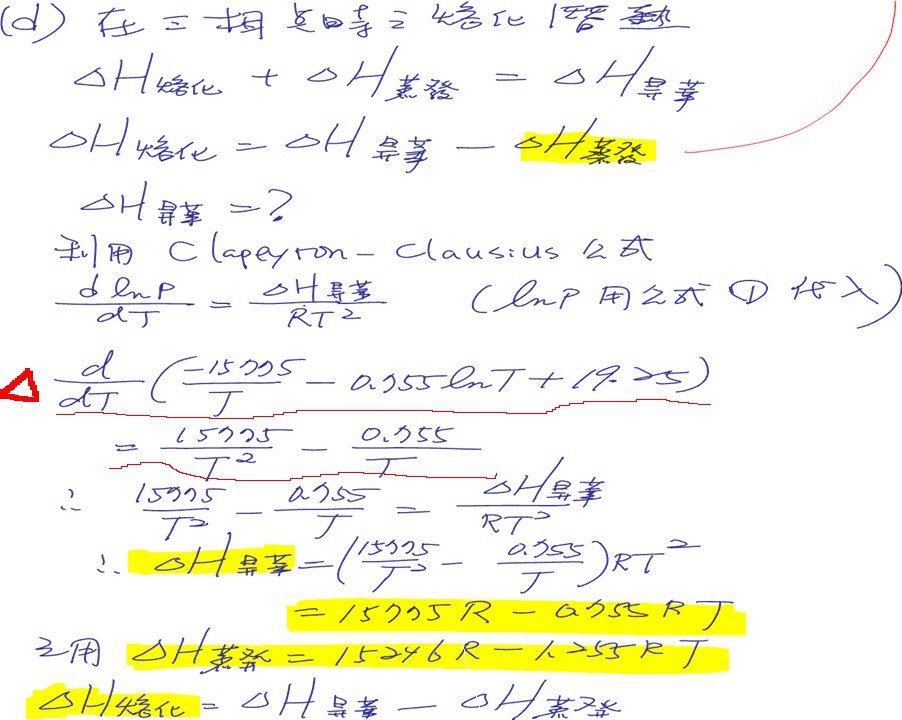 (d) 在三相點時之熔化潛熱
△H熔化 + △H蒸發 = △H昇華
△H熔化 = △H昇華 - △H蒸發
△H昇華 = ?
利用 Clapeyron-Clausius 公式
d lnP / dT = △H昇華 / RT² (lnP 用公式 ① 代入)
△ d/dT (-15775/T - 0.755 lnT + 19.25)
= 15775/T² - 0.755/T
∴ 15775/T² - 0.755/T = △H昇華 / RT²
∴ △H昇華 = (15775/T² - 0.755/T) RT²
= 15775R - 0.755RT
又用 △H蒸發 = 15246R - 1.255RT
△H熔化 = △H昇華 - △H蒸發